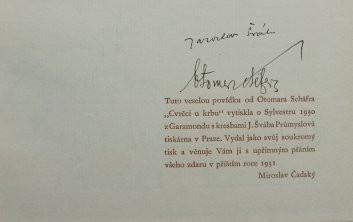 Jaroslav Šváb
Otomar Schäfer
Tuto veselou povídku od Otomara Schäfra
„Cvrčci u krbu“ vytiskla o Sylvestru 1930
z Garamondu s kresbami J. Švába Průmyslová
tiskárna v Praze. Vydal jako svůj soukromý
tisk a věnuje Vám ji s upřímným přáním
všeho zdaru v příštím roce 1931
Miroslav Čadský